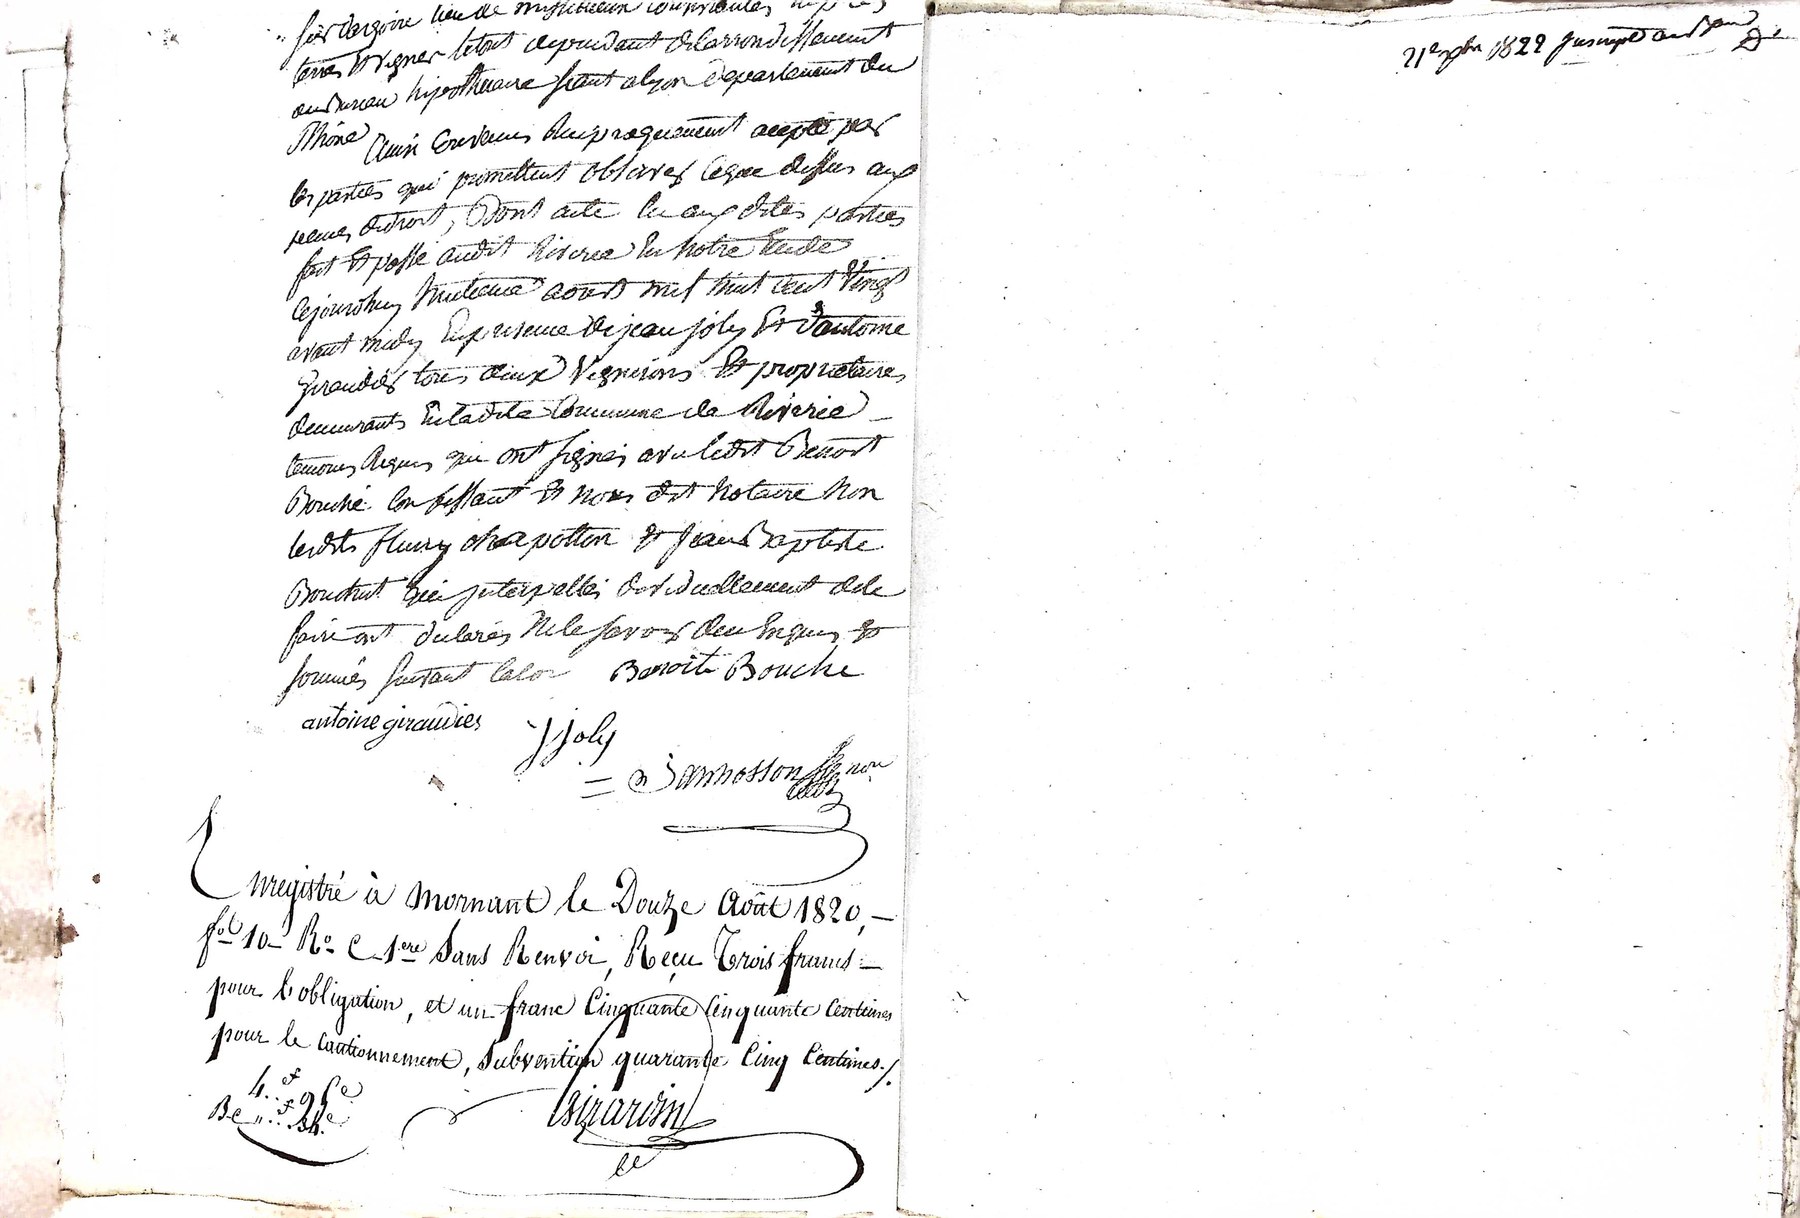 lieu de
terres et vignes le tout dependant de larrondissement
au Bureau hipothecaire seant a lyon departement du
Rhône Ainsi convenus Reciproquement accepté par
les parties qui promettent observer ceque dessus aux
peines de droit, Dont acte lu aux dites parties
fait et passé audit Riverie En notre Etude
cejourdhuy huitieme aoust mil huit cent Vingt
avant midy En presence de jean joly Et d'antoine
giraudier tous deux Vignerons Et proprietaires
demeurants En la dite Commune de Riverie
temoins Requis qui ont signés avec ledit Benoit
Bouché Confessant et nous dit notaire Non
lesdits fleury chapotton et jean Baptiste
Bouchut qui interpellés individuellement de le
faire ont declarés Ne le savoir de ce Enquis et
sommés suivant la loi Benoite Bouche
antoine giraudier
J joly
Enregistré à Mornant le Douze Août 1820,
fol 10 Ro C 1ere Sans Renvoi, Reçu Trois francs
pour l'obligation, et un franc Cinquante Cinquante Centimes
pour le Cautionnement, Subvention quarante Cinq Centimes./.
4..f 95c
Girardin
1822